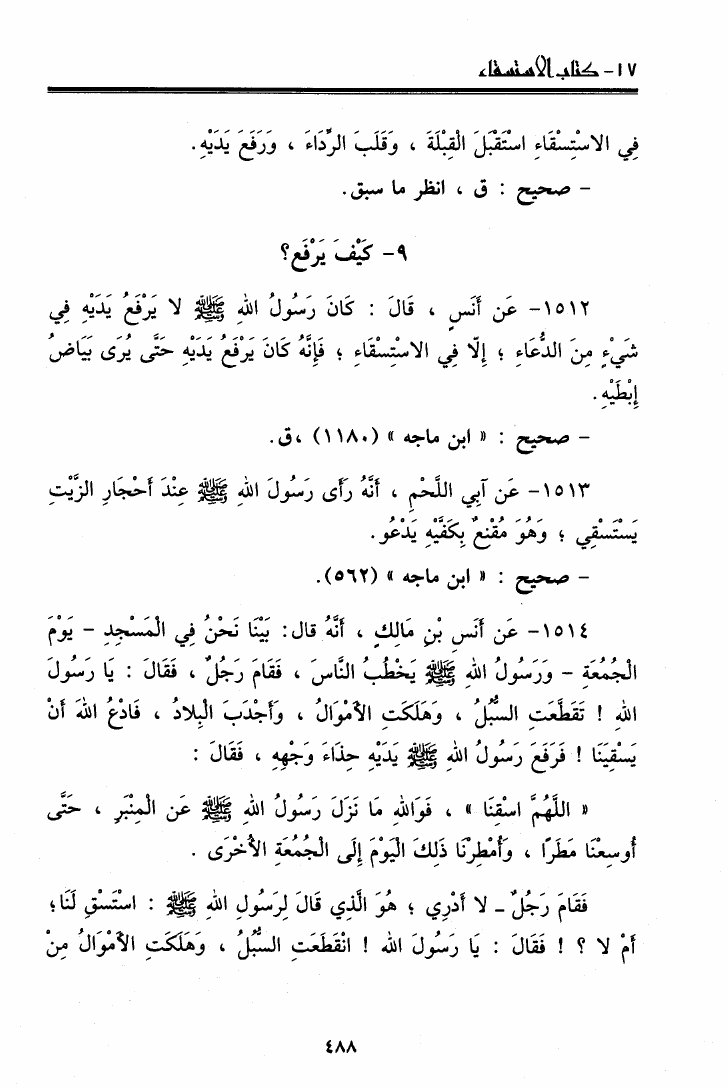 ١٧- كتاب الاستسقاء
فِي الاسْتِسْقَاءِ اسْتَقْبَلَ الْقِبْلَةَ ، وَقَلَبَ الرِّدَاءَ ، وَرَفَعَ يَدَيْهِ.
- صحيح : ق ، انظر ما سبق.
٩- كَيْفَ يَرْفَع؟
١٥١٢- عَن أَنَسٍ ، قَالَ : كَانَ رَسُولُ اللهِ ﷺ لا يَرْفَعُ يَدَيْهِ فِي
شَيْءٍ مِنَ الدُّعَاءِ ؛ إِلّا فِي الاسْتِسْقَاءِ ؛ فَإِنَّهُ كَانَ يَرْفَعُ يَدَيْهِ حَتَّى يُرَى بَيَاضُ
إِبْطَيْهِ.
- صحيح : « ابن ماجه » (١١٨٠) ،ق.
١٥١٣- عَن آبِي اللَّحْمِ ، أَنَّهُ رَأَى رَسُولَ اللهِ ﷺ عِنْدَ أَحْجَارِ الزَّيْتِ
يَسْتَسْقِي ؛ وَهُوَ مُقْنِعٌ بِكَفَّيْهِ يَدْعُو.
- صحيح : « ابن ماجه » (٥٦٢).
١٥١٤- عَن أَنَسِ بْنِ مَالِكٍ ، أَنَّهُ قال: بَيْنَا نَحْنُ فِي الْمَسْجِدِ - يَوْمَ
الْجُمُعَةِ - وَرَسُولُ اللهِ ﷺ يَخْطُبُ النَّاسَ ، فَقَامَ رَجُلٌ ، فَقَالَ : يَا رَسُولَ
اللهِ ! تَقَطَّعَتِ السُّبُلُ ، وَهَلَكَتِ الأَمْوَالُ ، وَأَجْدَبَ الْبِلادُ ، فَادْعُ اللهَ أَنْ
يَسْقِيَنَا ! فَرَفَعَ رَسُولُ اللهِ ﷺ يَدَيْهِ حِذَاءَ وَجْهِهِ ، فَقَالَ :
« اللَّهُمَّ اسْقِنَا » ، فَوَاللهِ مَا نَزَلَ رَسُولُ اللهِ ﷺ عَن الْمِنْبَرِ ، حَتَّى
أُوسِعْنَا مَطَرًا ، وَأُمْطِرْنَا ذَلِكَ الْيَوْمَ إِلَى الْجُمُعَةِ الأُخْرَى .
فَقَامَ رَجُلٌ- لا أَدْرِي ؛ هُوَ الَّذِي قَالَ لِرَسُولِ اللهِ ﷺ : اسْتَسْقِ لَنَا؛
أَمْ لا ؟ ! فَقَالَ : يَا رَسُولَ الله ! انْقَطَعَتِ السُّبُلُ ، وَهَلَكَتِ الأَمْوَالُ مِنْ
٤٨٨